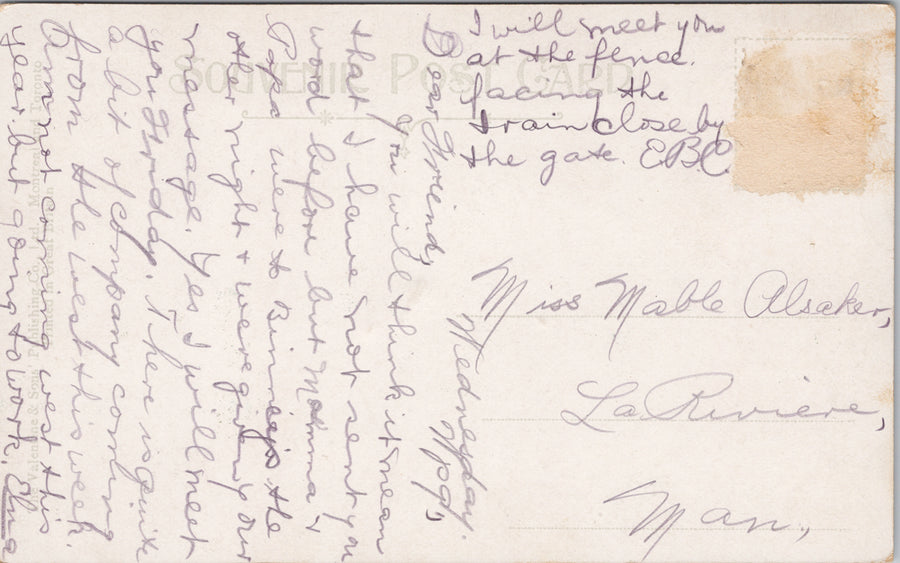 SOUVENIR POST CARD
I will meet you
at the fence.
facing the
train close by
the gate. E.B.C.
Wednesday.
Wpg,
Dear Friend,
you will think it mean
that I have not sent you
word before but Momma &
Papa were to Binneys the
other night & were given your
message. Yes I will meet
you Friday. There is quite
a bit of company coming
from the west this week.
Am not coming west this
year. but going to work. Elma
Miss Mable Alsaker,
La Riviere,
Man.,
Valentine & Sons' Publishing Co., Ltd., Montreal and Toronto
Printed in Great Britain